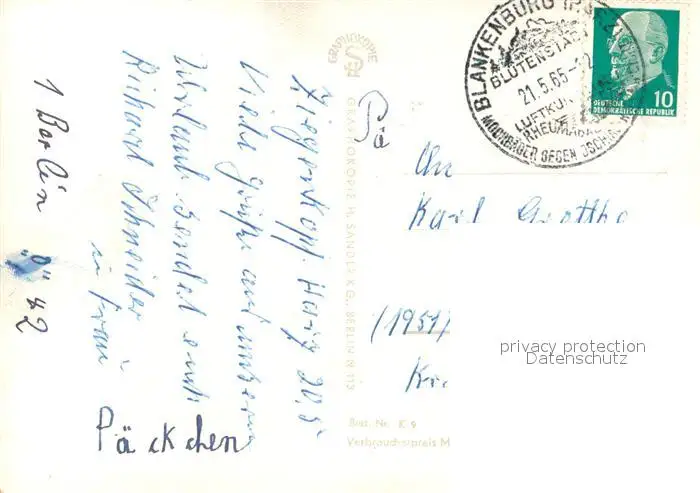 Ziegenkopf, Harz 20.5
Viele Grüße aus unserem
Urlaub sendet euch
Richard Schneider
u. Frau
1 Berlin
"Ö" 42
Päckchen
Pä
GRAPHOKOPIE
GRAPHOKOPIE H. SANDER KG., BERLIN N 113
Best. Nr. K 9
Verbraucherpreis M
BLANKENBURG (HARZ)
BLÜTENSTADT
21.5.65-12
LUFTKU
RHEUMABAD
MOORBÄDER GEGEN ISCHIAS
DEUTSCHE
DEMOKRATISCHE REPUBLIK
10
An
Karl Grottho
(1951)
Kr.
privacy protection
Datenschutz